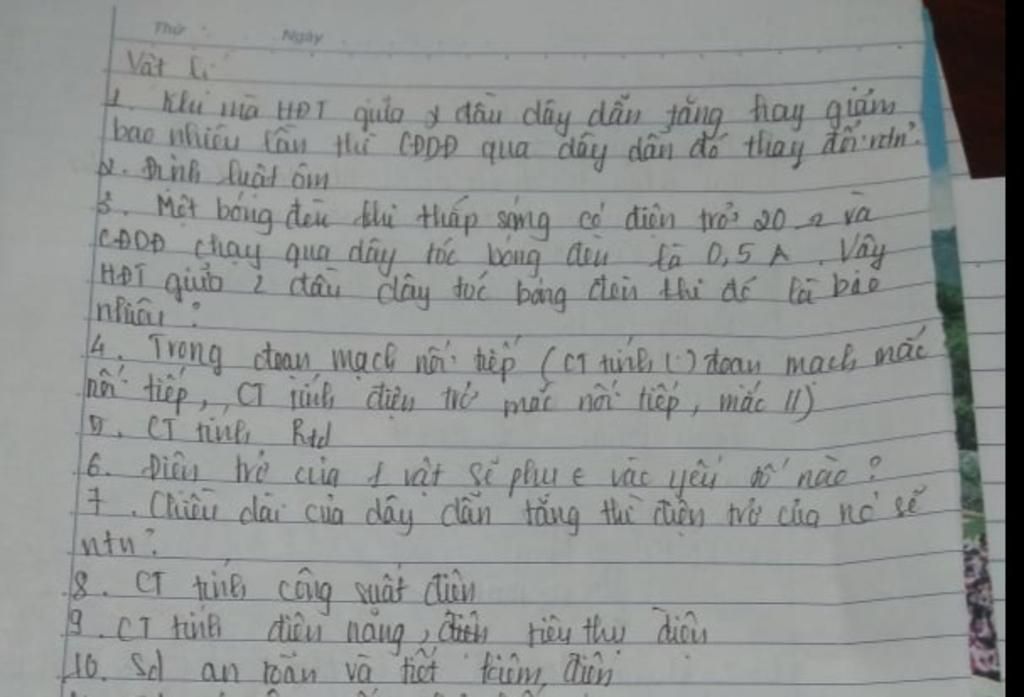 Thứ Ngày
Vật lí
1. Khi mà HĐT giữa 2 đầu dây dẫn tăng hay giảm
bao nhiêu lần thì CĐDĐ qua dây dẫn đó thay đổi ntn?
2. Định luật ôm
3. Một bóng đèn khi thắp sáng có điện trở 20 Ω và
CĐDĐ chạy qua dây tóc bóng đèn là 0,5 A. Vậy
HĐT giữa 2 đầu dây tóc bóng đèn khi đó là bao
nhiêu?
4. Trong đoạn mạch nối tiếp (CT tính (.) đoạn mạch mắc
nối tiếp, CT tính điện trở mắc nối tiếp, mắc //)
5. CT tính Rtđ
6. Điện trở của 1 vật sẽ phụ ∈ vào yếu tố nào?
7. Chiều dài của dây dẫn tăng thì điện trở của nó sẽ
ntn?
8. CT tính công suất điện
9. CT tính điện năng, tiêu thụ điện
10. Sd an toàn và tiết kiệm điện